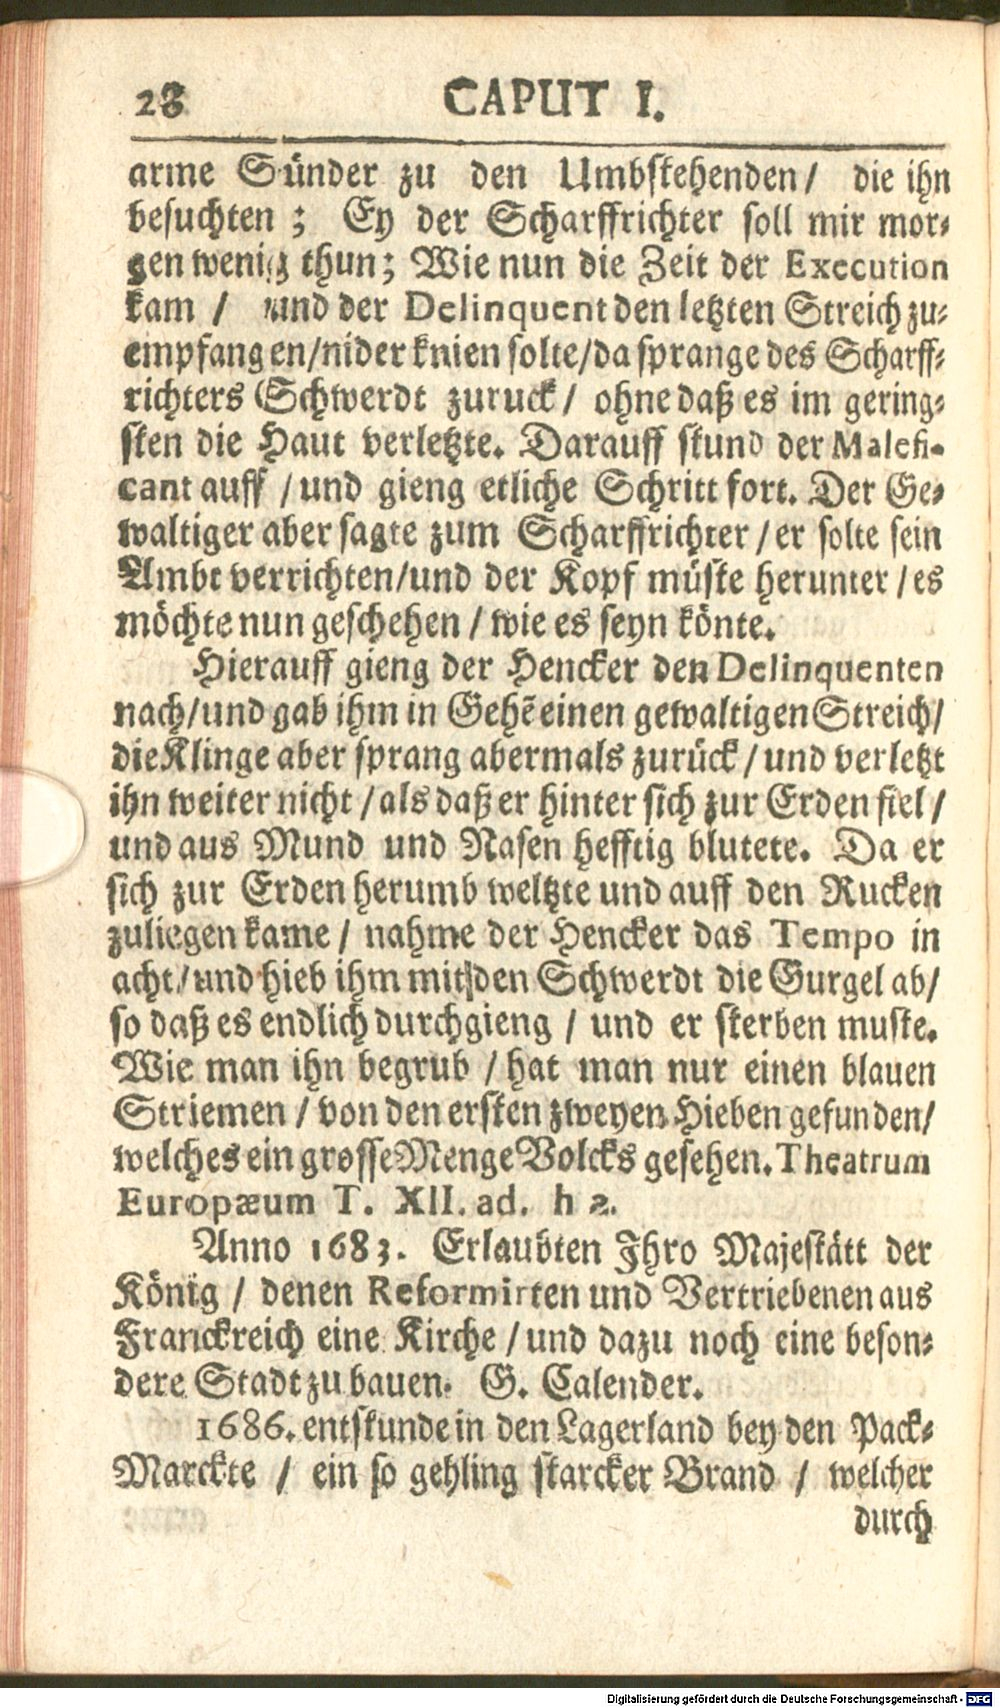 28 CAPUT I.
arme Sünder zu den Umbstehenden / die ihn
besuchten ; Ey der Scharffrichter soll mir mor-
gen wenig thun; Wie nun die Zeit der Execution
kam / und der Delinquent den letzten Streich zu-
empfangen/nider knien solte/da sprange des Scharff-
richters Schwerdt zuruck / ohne daß es im gering-
sten die Haut verletzte. Darauff stund der Malefi-
cant auff / und gieng etliche Schritt fort. Der Ge-
waltiger aber sagte zum Scharffrichter / er solte sein
Ambt verrichten/und der Kopf müste herunter / es
möchte nun geschehen / wie es seyn könte.
Hierauff gieng der Hencker den Delinquenten
nach/und gab ihm in Gehē einen gewaltigen Streich/
die Klinge aber sprang abermals zurück / und verletzt
ihn weiter nicht / als daß er hinter sich zur Erden fiel /
und aus Mund und Nasen hefftig blutete. Da er
sich zur Erden herumb weltzte und auff den Rucken
zuliegen kame / nahme der Hencker das Tempo in
acht / und hieb ihm mit den Schwerdt die Gurgel ab/
so daß es endlich durchgieng / und er sterben muste.
Wie man ihn begrub / hat man nur einen blauen
Striemen / von den ersten zweyen Hieben gefunden/
welches ein grosse Menge Volcks gesehen. Theatrum
Europæum T. XII. ad. h a.
Anno 1683. Erlaubten Ihro Majestätt der
König / denen Reformirten und Vertriebenen aus
Franckreich eine Kirche / und dazu noch eine beson-
dere Stadt zu bauen. G. Calender.
1686. entstunde in den Lagerland bey den Pack-
Marckte / ein so gehling starcker Brand / welcher
durch
Digitalisierung gefördert durch die Deutsche Forschungsgemeinschaft - DFG